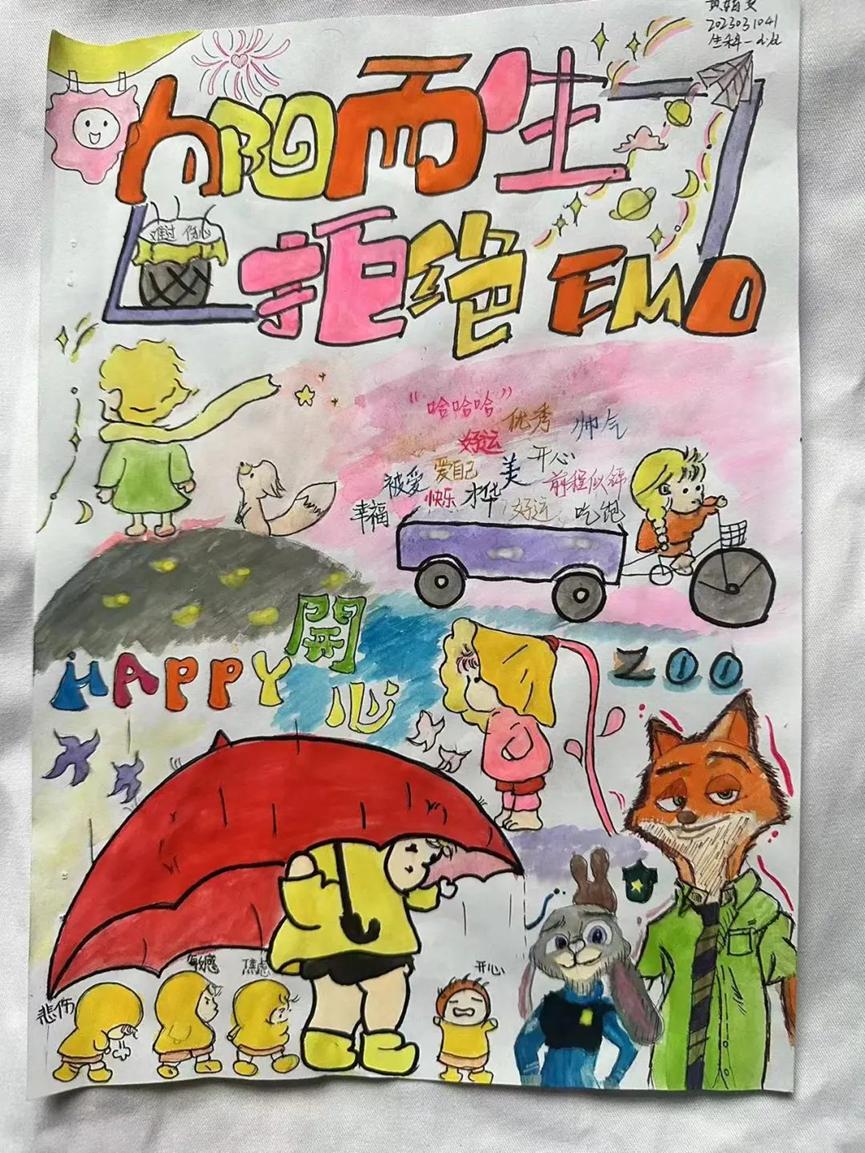 2023031041
向阳而生
难过 伤心
拒绝 EMO
“哈哈哈”
优秀
帅气
好运
开心
被爱
爱自己
美
前程似锦
幸福
快乐
才华
好运
吃饱
HAPPY
開
心
ZOO
悲伤
敏感
焦虑
开心